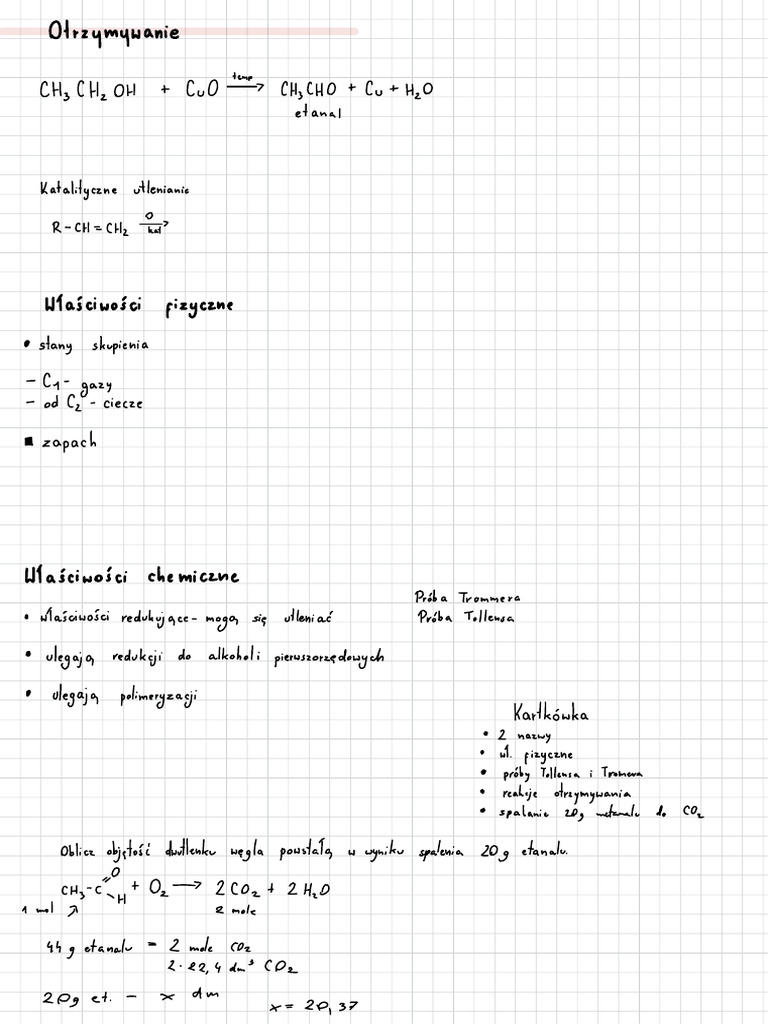 Otrzymywanie
CH₃CH₂OH + CuO temp → CH₃CHO + Cu + H₂O
etanal
Katalityczne utlenianie
R-CH=CH₂ O kat →
Właściwości fizyczne
• stany skupienia
- C₁ - gazy
- od C₂ - ciecze
▪ zapach
Właściwości chemiczne
• właściwości redukujące - mogą się utleniać
• ulegają redukcji do alkoholi pierwszorzędowych
• ulegają polimeryzacji
Próba Trommera
Próba Tollensa
Kartkówka
• 2 nazwy
• wł. fizyczne
• próby Tollensa i Tromera
• reakcje otrzymywania
• spalanie 20g metanalu do CO₂
Oblicz objętość dwutlenku węgla powstałą w wyniku spalenia 20g etanalu.
CH₃-C=O-H + O₂ → 2CO₂ + 2H₂O
1 mol ↗ 2 mole
44 g etanalu = 2 mole CO₂
2·22,4 dm³ CO₂
20g et. - x dm
x = 20,37